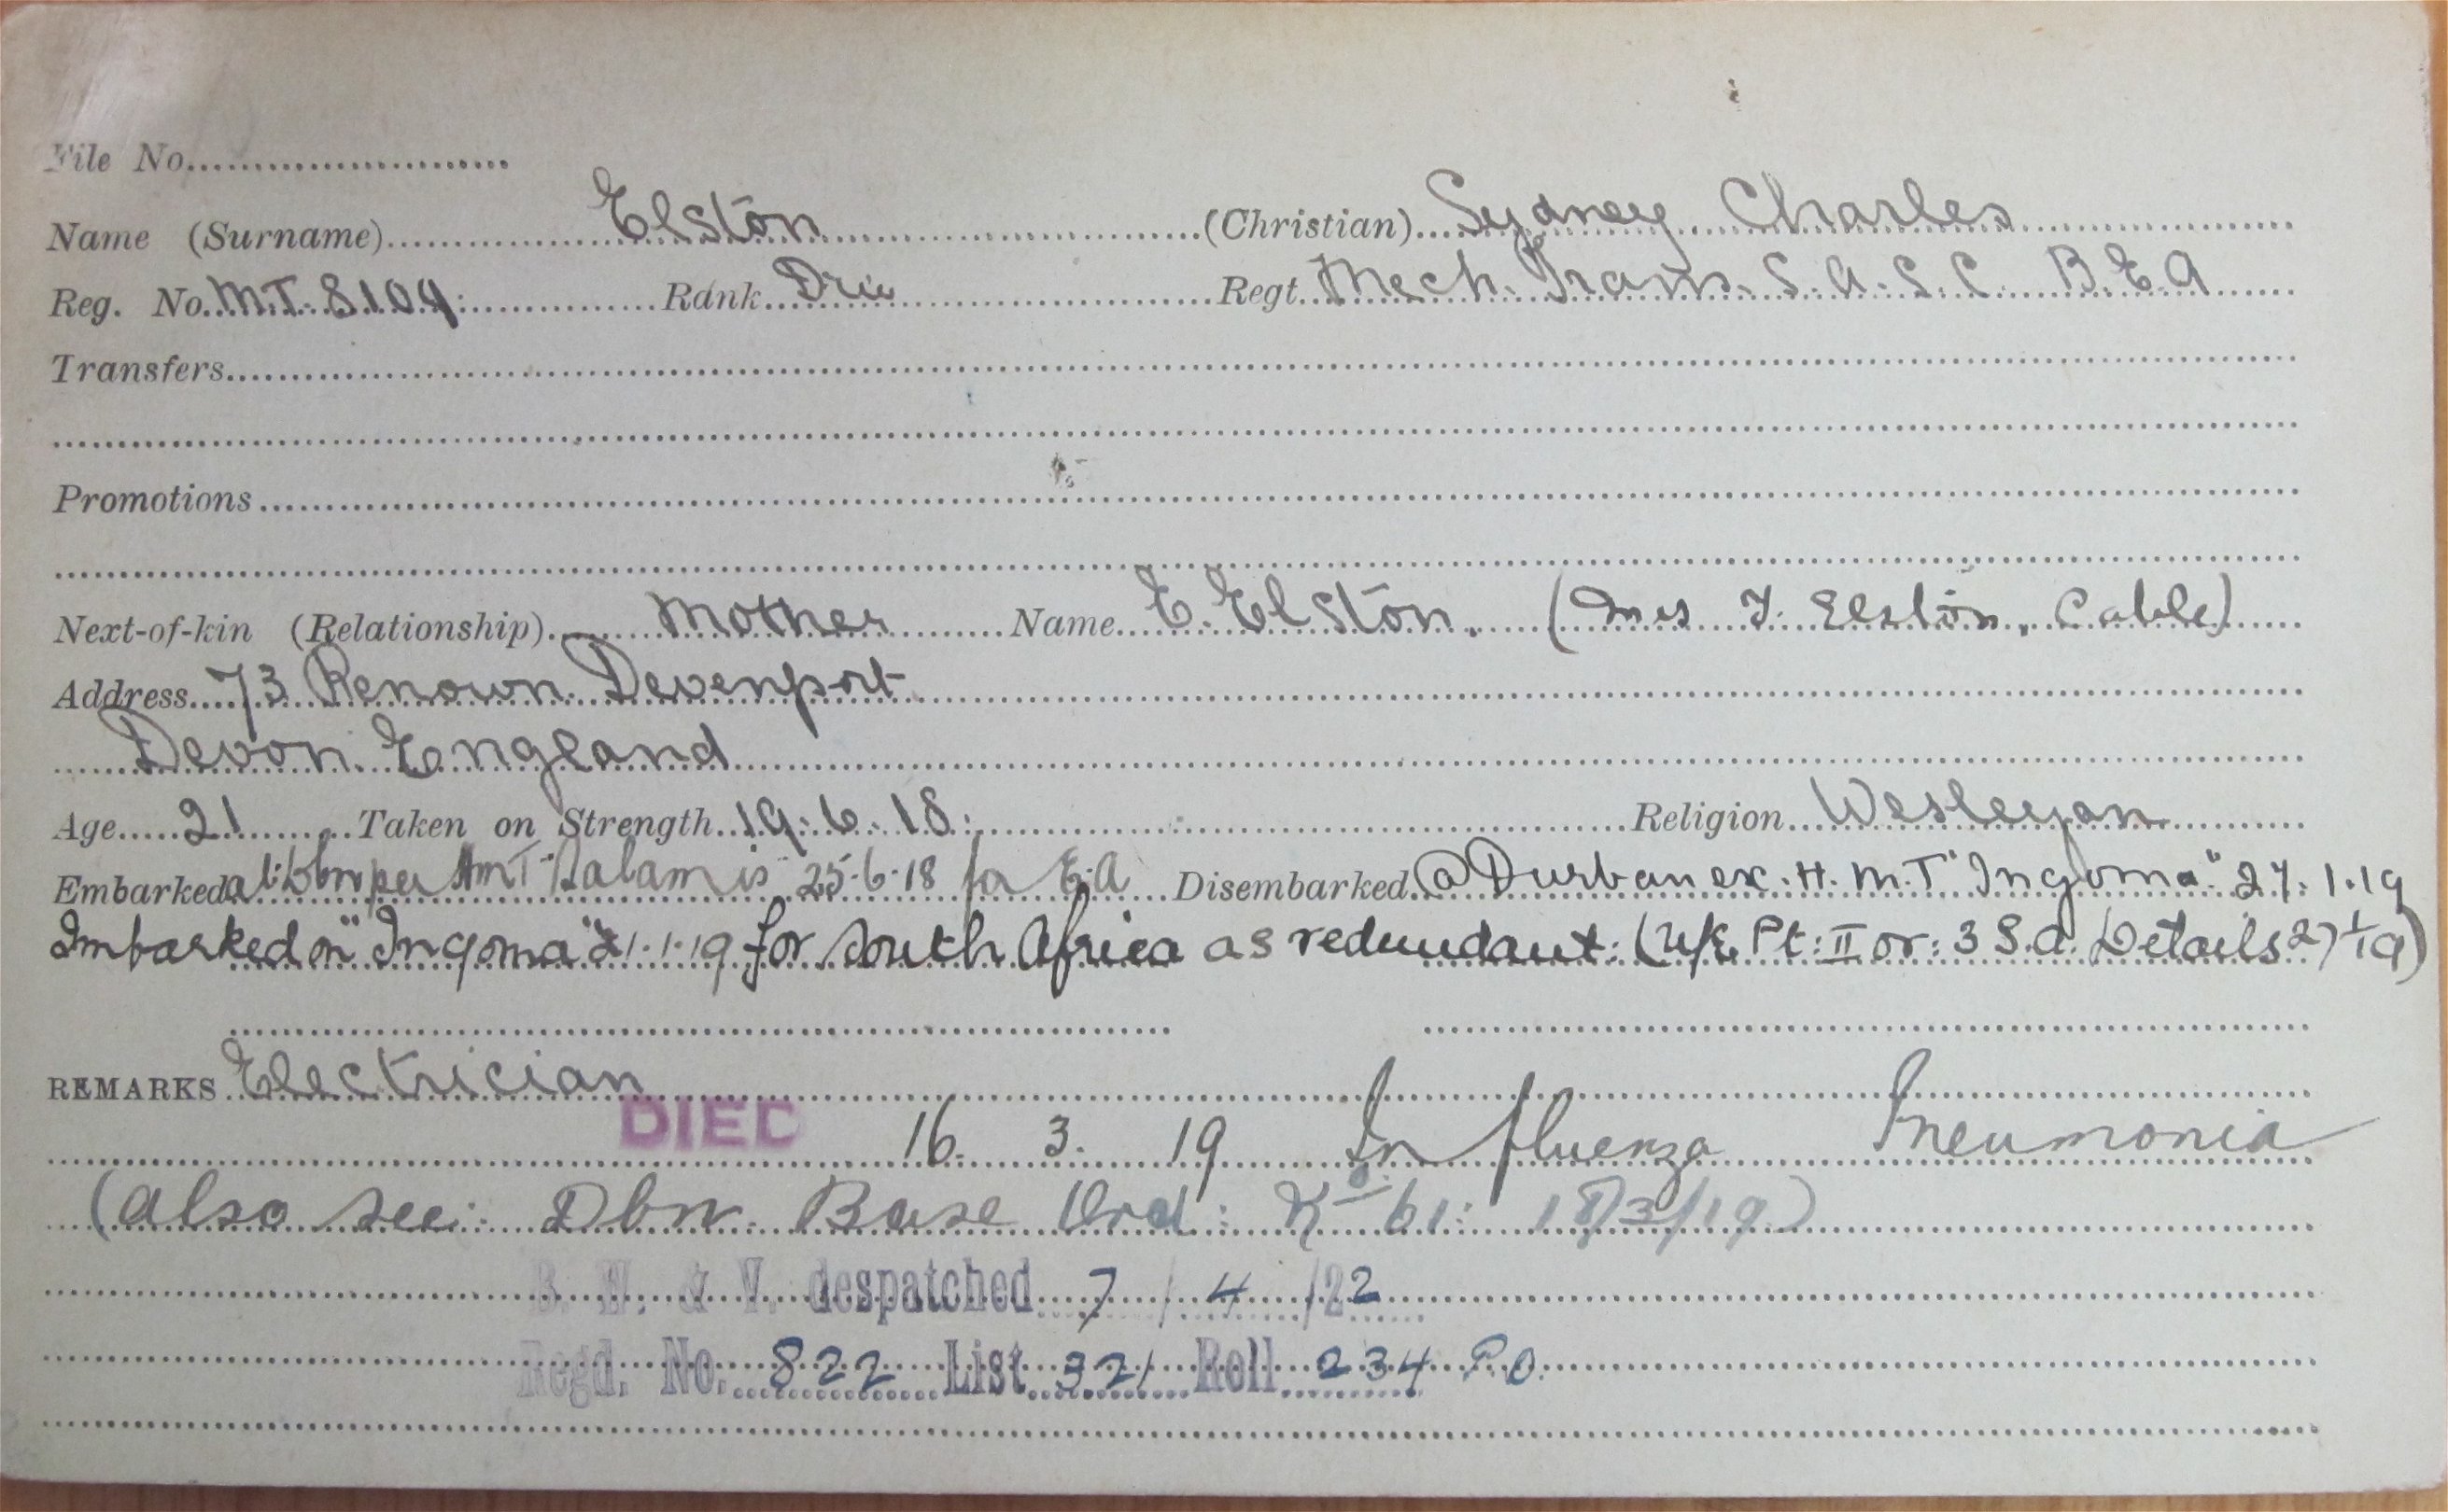 File No.
Name (Surname) Elston (Christian) Sydney Charles
Reg. No. M.T. 8104 Rank Driv Regt. Mech. Trans. S. A. S. C. B. E. A
Transfers
Promotions
Next-of-kin (Relationship) Mother Name E. Elston. (Mrs J. Elston, Cable)
Address 73 Renown. Devenport
Devon. England
Age 21 Taken on Strength 19. 6. 18. Religion Wesleyan
Embarked at Dbn per HMT "Salamis" 25-6-18 for E.A Disembarked @ Durban ex. H. M. T "Ingoma" 27. 1. 19
Imbarked on "Ingoma" 21. 1. 19 for South Africa as redundant: ( Pt: II or: 3 S.A. Details 27/1/19)
REMARKS Electrician
DIED 16. 3. 19 Influenza Pneumonia
(also see: Dbn. Base Ord: No 61: 18/3/19)
B. W. & V. despatched 7 / 4 /22
Regd. No. 822 List 321 Roll 234 P.O.